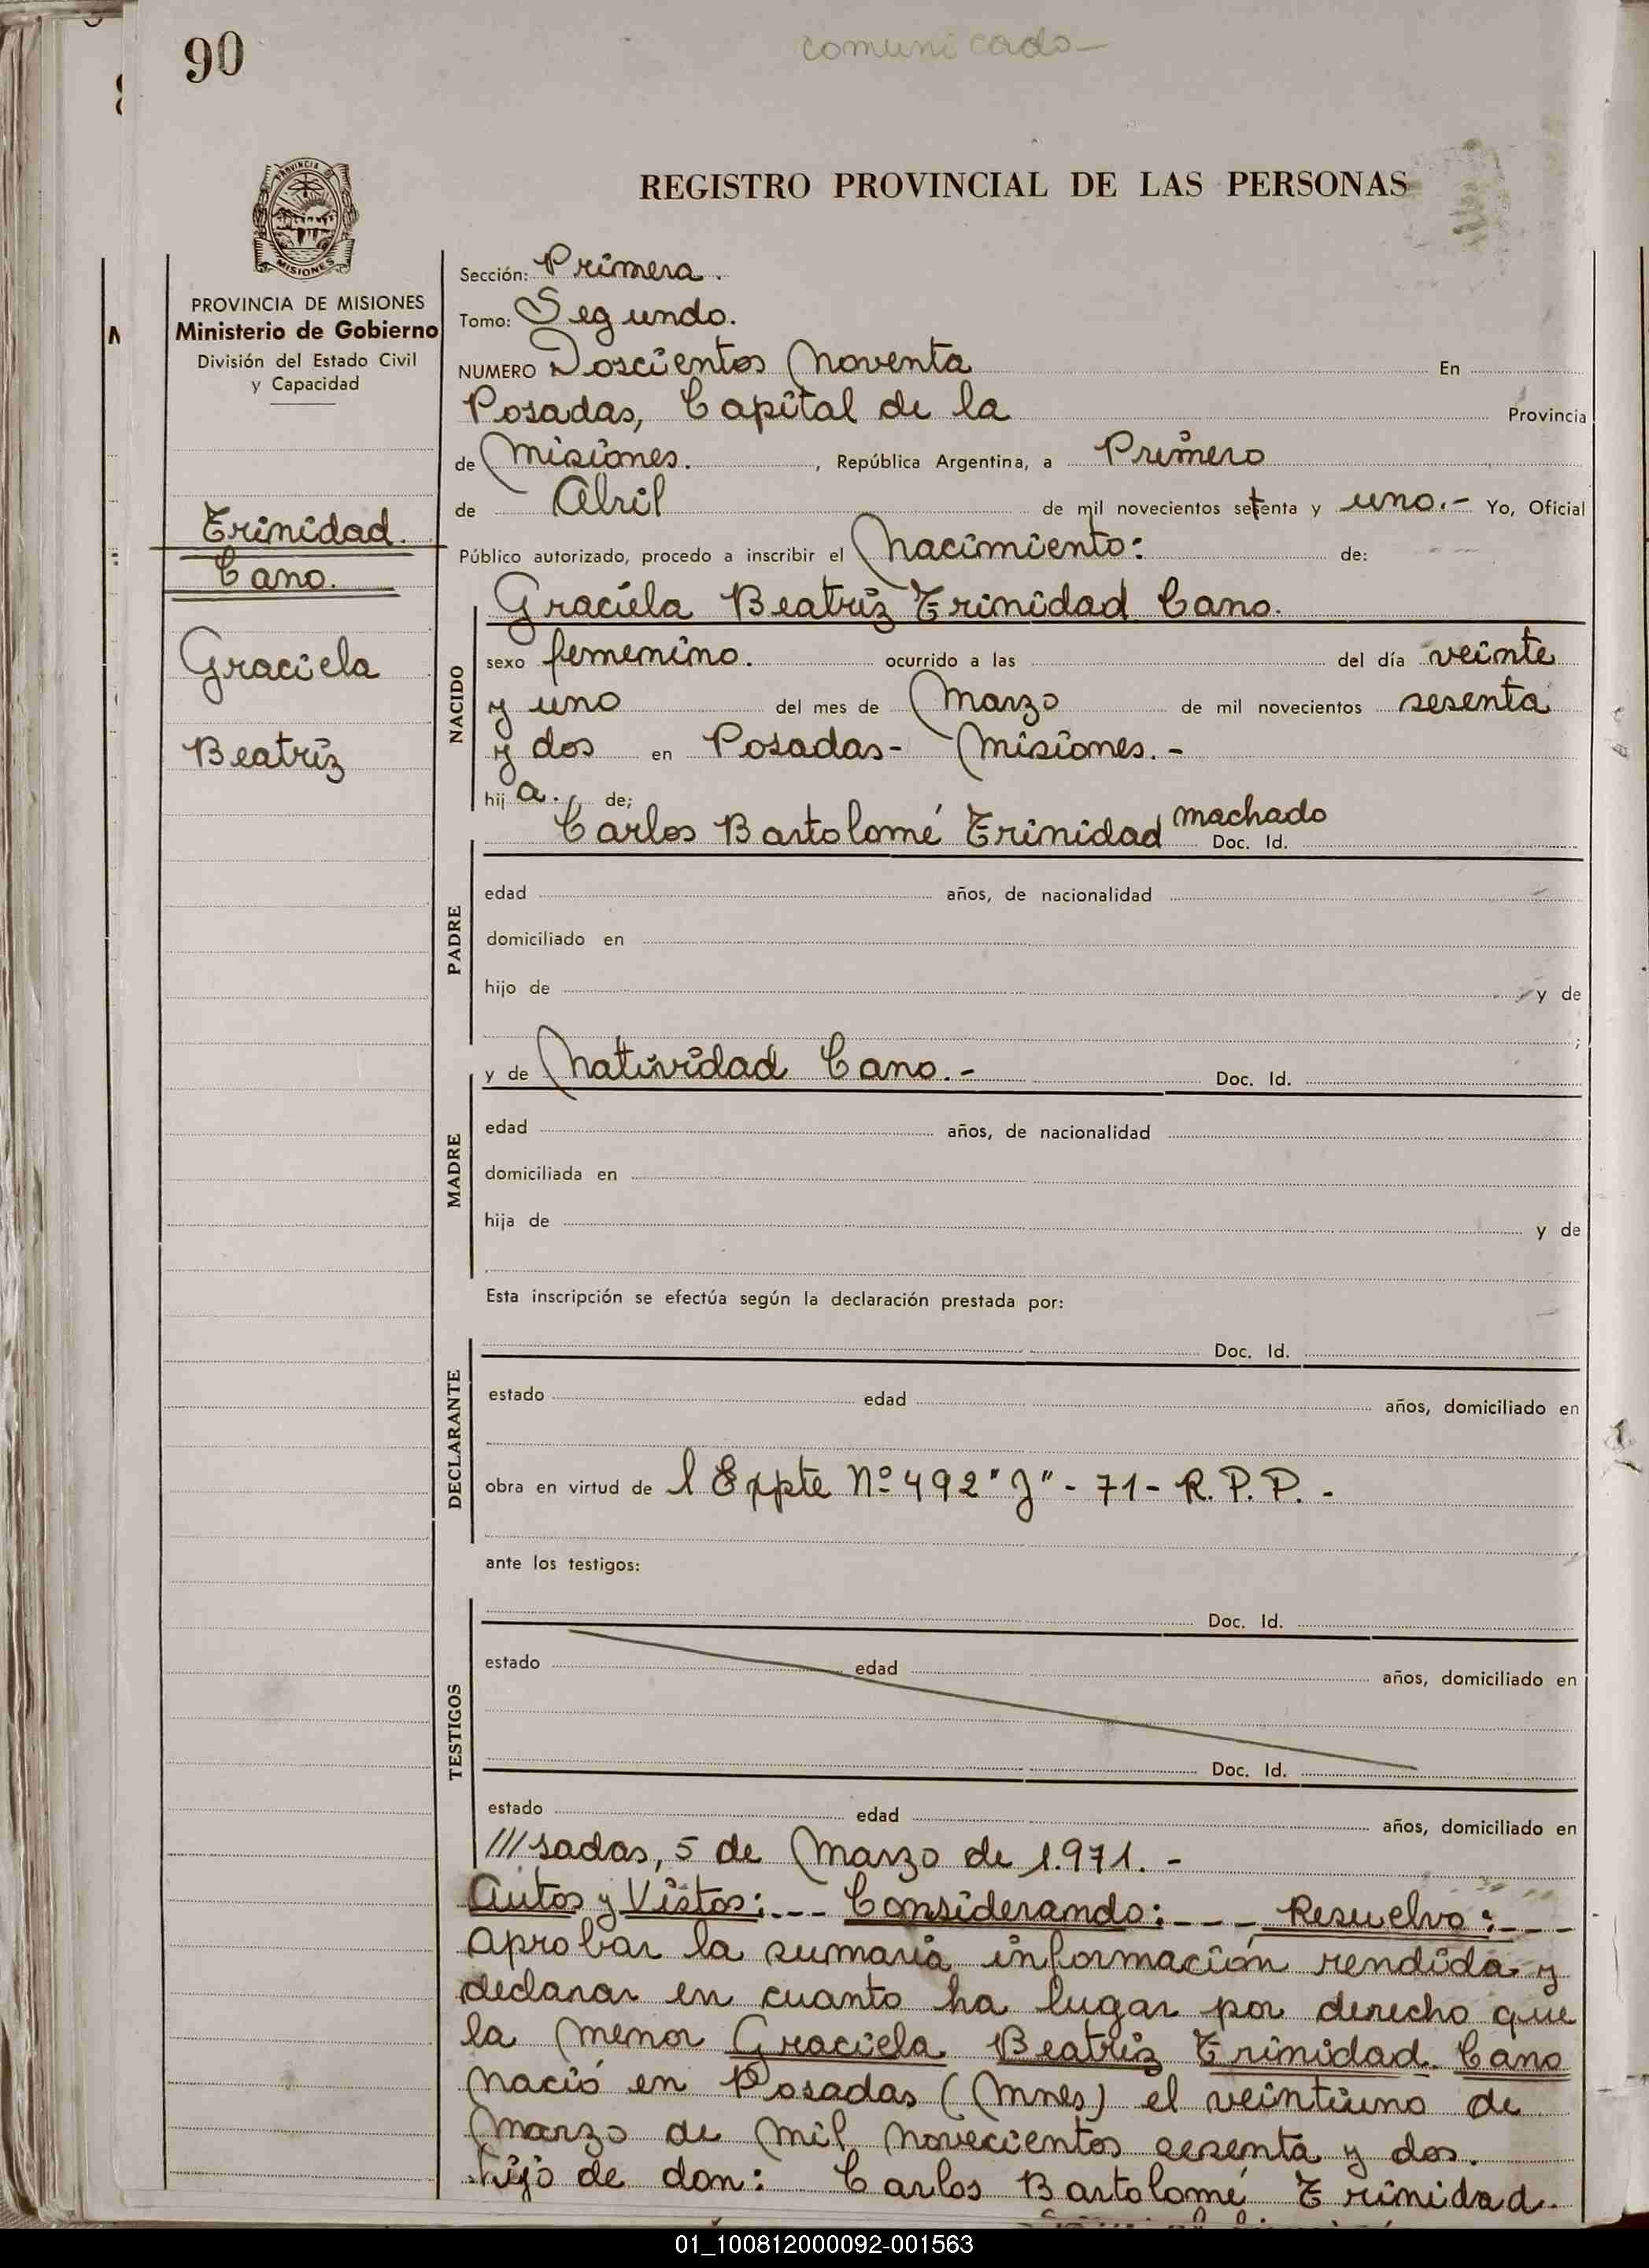 90
comunicado
PROVINCIA DE MISIONES
Ministerio de Gobierno
División del Estado Civil
y Capacidad
Trinidad.
Cano.
Graciela
Beatríz
REGISTRO PROVINCIAL DE LAS PERSONAS
Sección: Primera.
Tomo: Segundo.
NUMERO Doscientos Noventa En
Posadas, Capital de la Provincia
de Misiones. , República Argentina, a Primero
de Abril de mil novecientos setenta y uno.- Yo, Oficial
Público autorizado, procedo a inscribir el Nacimiento: de:
Graciela Beatríz Trinidad Cano.
NACIDO
sexo femenino. ocurrido a las del día veinte
y uno del mes de Marzo de mil novecientos sesenta
y dos en Posadas- Misiones.-
hij a. de;
Carlos Bartolomé Trinidad machado Doc. Id.
PADRE
edad años, de nacionalidad
domiciliado en
hijo de y de
;
y de Natividad Cano.- Doc. Id.
MADRE
edad años, de nacionalidad
domiciliada en
hija de y de
Esta inscripción se efectúa según la declaración prestada por:
Doc. Id.
DECLARANTE
estado edad años, domiciliado en
obra en virtud de l Expte Nº 492 "J" - 71 - R. P. P. -
ante los testigos:
Doc. Id.
TESTIGOS
estado edad años, domiciliado en
Doc. Id.
estado edad años, domiciliado en
///sadas, 5 de Marzo de 1.971.-
Autos y Vistos:--- Considerando:--- Resuelvo:---
Aprobar la sumaria información rendida y
declarar en cuanto ha lugar por derecho que
la menor Graciela Beatríz Trinidad Cano
nació en Posadas (Mnes) el veintiuno de
Marzo de mil novecientos sesenta y dos.
hijo de don: Carlos Bartolomé Trinidad.
01_100812000092-001563